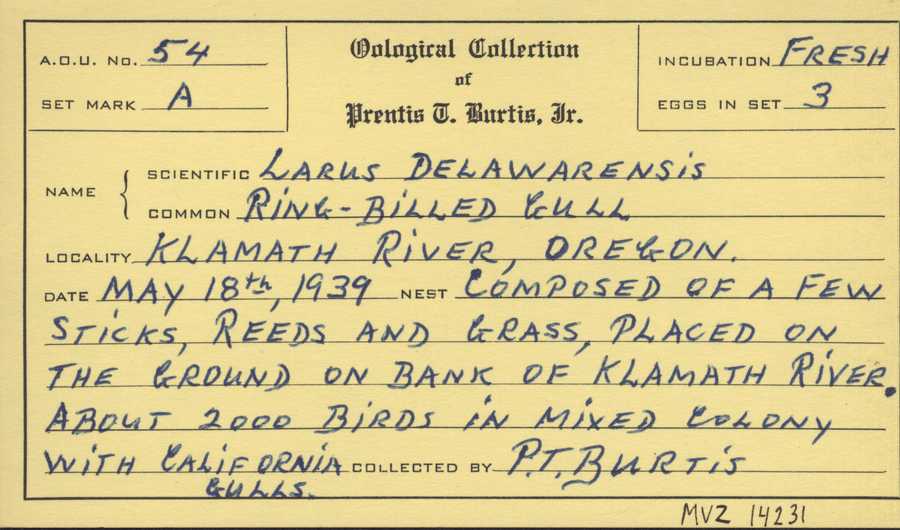 A.O.U. No. 54
SET MARK A
Oological Collection
of
Prentis T. Burtis, Jr.
INCUBATION FRESH
EGGS IN SET 3
NAME
SCIENTIFIC LARUS DELAWARENSIS
COMMON RING-BILLED GULL
LOCALITY KLAMATH RIVER, OREGON.
DATE MAY 18th, 1939 NEST COMPOSED OF A FEW
STICKS, REEDS AND GRASS, PLACED ON
THE GROUND ON BANK OF KLAMATH RIVER.
ABOUT 2000 BIRDS IN MIXED COLONY
WITH CALIFORNIA COLLECTED BY P.T. BURTIS
GULLS.
MVZ 14231